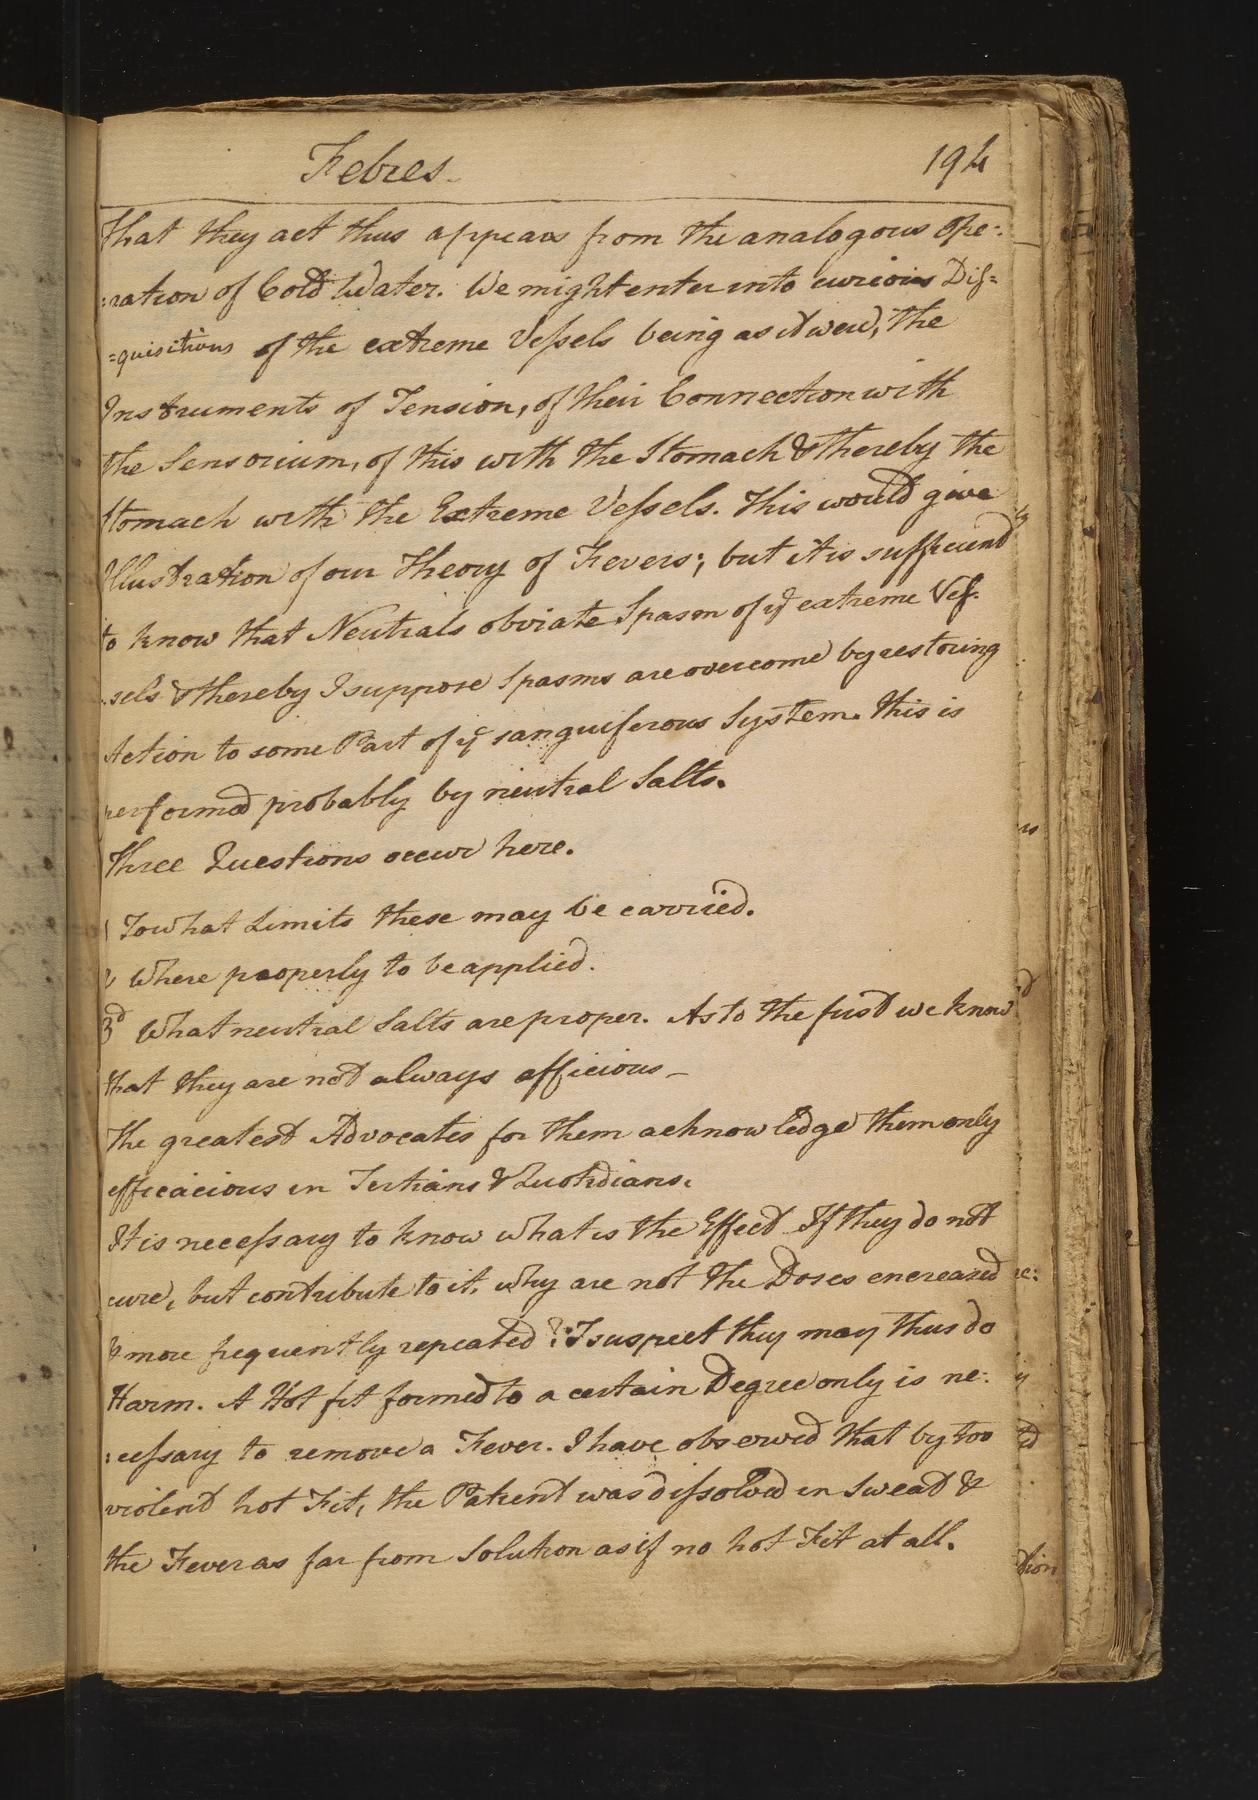 Febres
194
That they act thus appears from the analogous Ope:
:ration of Cold Water. We might enter into curious Dis=
=quisitions of the extreme Vessels being as it were, the
Instruments of Tension, of their Connection with
the Sensorium, of this with the Stomach & thereby the
Stomach with the Extreme Vessels. This would give
Illustration of our Theory of Fevers; but it is sufficient
to know that Neutrals obviate Spasm of ye extreme Ves:
:sels & thereby I suppose Spasms are overcome by restoring
Action to some Part of ye sanguiferous System. This is
performed probably by neutral Salts.
Three Questions occur here.
1 To what Limits these may be carried.
2 Where properly to be applied.
3d What neutral Salts are proper. As to the first we know
that they are not always efficious_
The greatest Advocates for them acknowledge them only
efficacious in Tertians & Quotidians.
It is necessary to know what is the Effect If they do not
cure, but contribute to it, why are not the Doses encreased
& more frequently repeated? I suspect they may thus do
Harm. A Hot fit formed to a certain Degree only is ne:
:cessary to remove a Fever. I have observed that by too
violent hot Fit, the Patient was dissolved in Sweat &
the Fever as far from Solution as if no hot Fit at all.